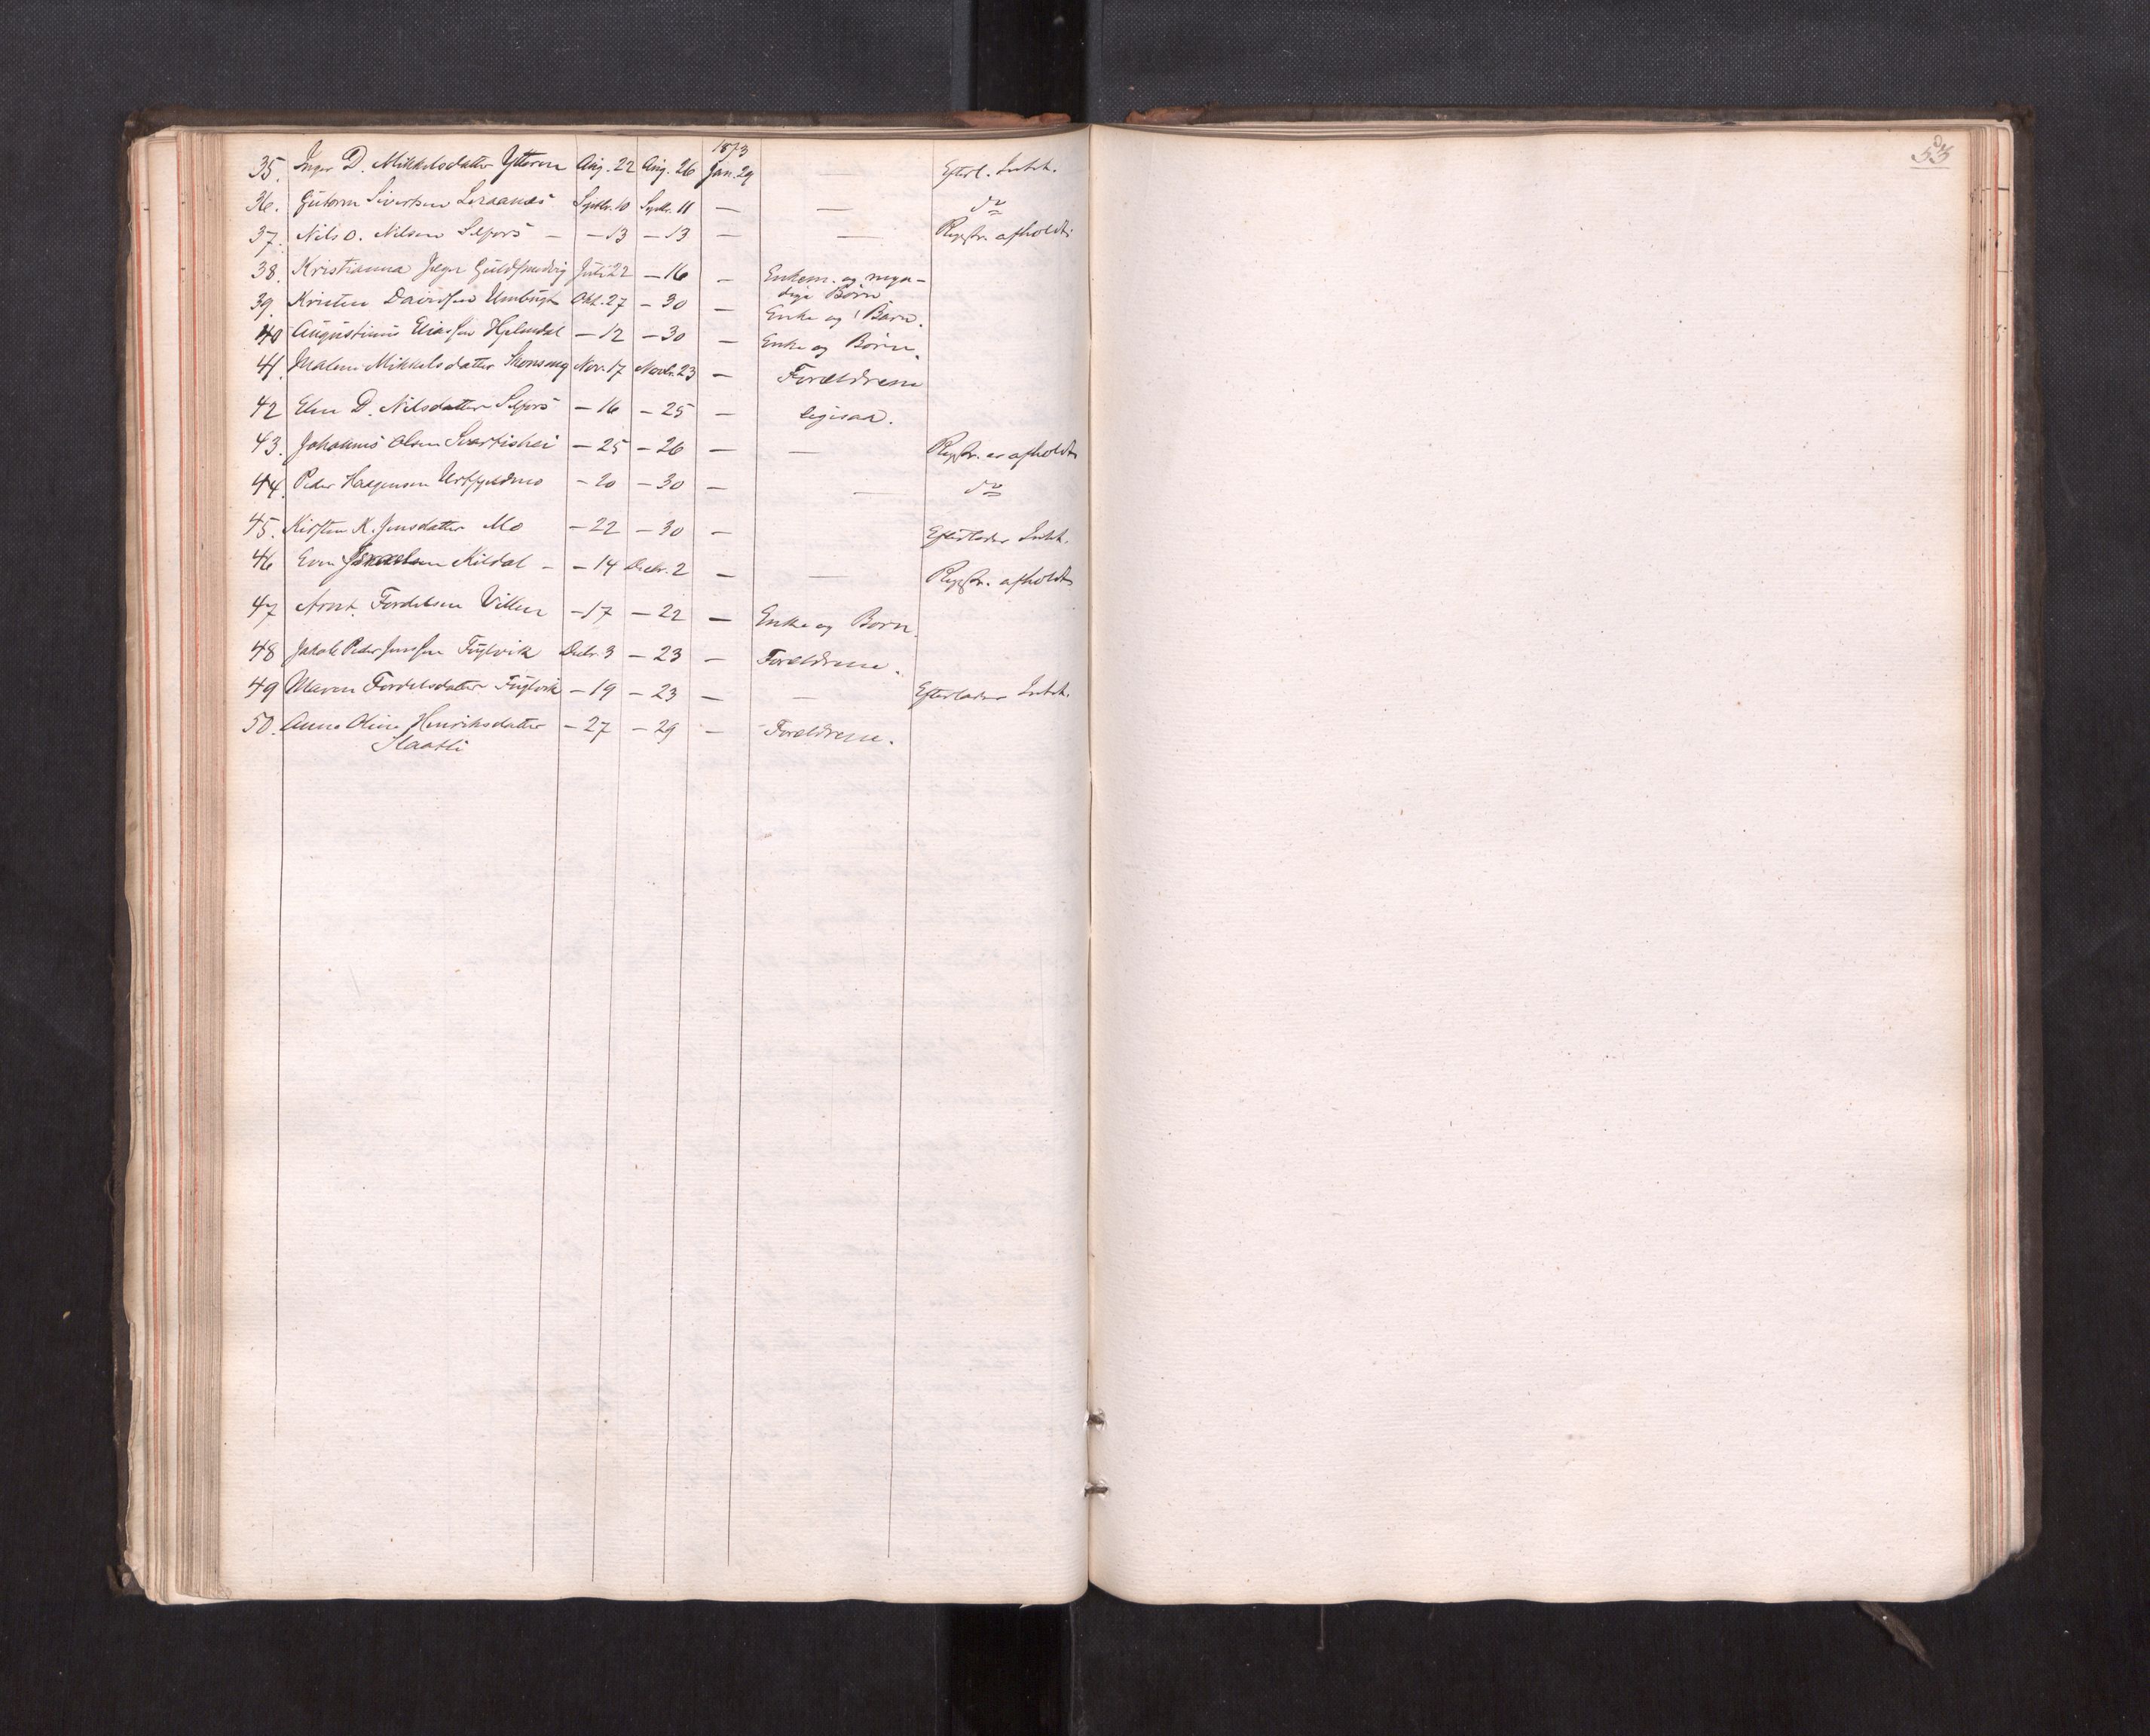 1873
35. Inger D. Mikkelsdatter Ytteren Aug. 22 Aug. 26 Jan. 29 — Efterl. Intet.
36. Guttorm Sivertsen Leraanæs Septbr. 10 Septbr. 11 — — do
37. Nils O. Nilsen Selfors — — 13 — 13 — — Regstr. afholdt.
38. Kristianna Jæger Guldsmedvig Juli 22 — 16 — Enkem. og myn-
dige Børn
39. Kristen Davidsen Umbugt Okt. 27 — 30 — Enke og 1 Barn.
40 Augustinus Eliassen Hjelmdal — 12 — 30 — Enke og Børn.
41. Malene Mikkelsdatter Skonseng Nov. 17 Novbr. 23 — Forældrene
42 Elen D. Nilsdatter Selfors — 16 — 25 — ligesaa.
43. Johannes Olsen Svartishei — 25 — 26 — — Regstr. er afholdt
44. Peder Haagensen Urtfjeldmo — 20 — 30 — — do
45. Kirsten K. Jensdatter Mo — 22 — 30 — Efterlader Intet.
46 Even Kildal — — 14 Decbr. 2 — — Regstr. afholdt
47 Arnt. Tordelsen Villen — 17 — 22 — Enke og Børn.
48 Jakob Peder Jenssen Fuglvik Decbr. 3 — 23 — Forældrene.
49 Maren Tordelsdatter Fuglvik — 19 — 23 — — Efterlader Intet.
50. Anne Oline Henriksdatter — 27 — 29 — Forældrene.
Slaatli
53